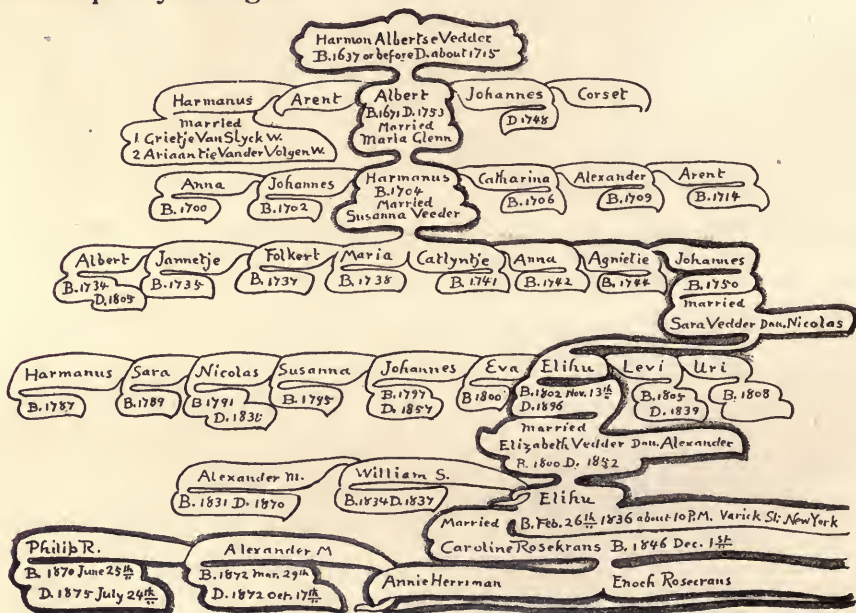 Harmon Albertse Vedder
B. 1637 or before D. about 1715
Harmanus
married
1. Grietje Van Slyck W.
2 Ariaantie Vander Volgen W.
Arent
Albert
B. 1671 D. 1753
Married
Maria Glenn
Johannes
D 1748
Corset
Anna
B. 1700
Johannes
B. 1702
Harmanus
B. 1704
Married
Susanna Veeder
Catharina
B. 1706
Alexander
B. 1709
Arent
B. 1714
Albert
B. 1734
D. 1805
Jannetje
B. 1735
Folkert
B. 1737
Maria
B. 1738
Catlyntje
B. 1741
Anna
B. 1742
Agnietie
B. 1744
Johannes
B. 1750
married
Sara Vedder Dau. Nicolas
Harmanus
B. 1787
Sara
B. 1789
Nicolas
B 1791
D. 1838
Susanna
B. 1795
Johannes
B. 1797
D. 1857
Eva
B 1800
Elihu
B. 1802 Nov. 13th
D. 1896
married
Elizabeth Vedder Dau. Alexander
B. 1800 D. 1852
Levi
B. 1805
D. 1839
Uri
B. 1808
Alexander M.
B. 1831 D. 1870
William S.
B. 1834 D. 1837
Elihu
B. Feb. 26th 1836 about 10 P.M. Varick St: New York
Married
Caroline Rosekrans B. 1846 Dec. 1st
Philip R.
B. 1870 June 25th
D. 1875 July 24th
Alexander M
B. 1872 Mar. 29th
D. 1872 Oct. 17th
Annie Herriman
Enoch Rosecrans